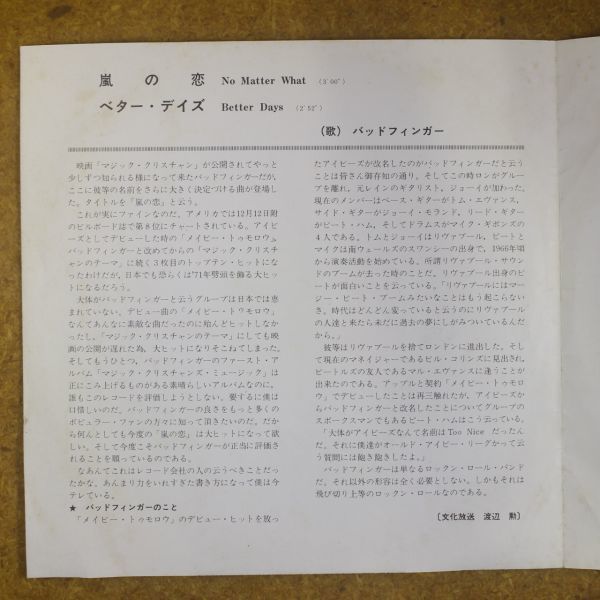 嵐の恋 No Matter What (3'00")
ベター・デイズ Better Days (2'52")
(歌) バッドフィンガー
映画「マジック・クリスチャン」が公開されてやっと
少しずつ知られる様になって来たバッドフィンガーだが、
ここに彼等の名前をさらに大きく決定づける曲が登場し
た。タイトルを「嵐の恋」と云う。
これが実にファインなのだ。アメリカでは12月12日附
のビルボード誌で第8位にチャートされている。アイビ
ーズとしてデビューした時の「メイビー・トゥモロウ」、
バッドフィンガーと改めてからの「マジック・クリスチ
ャンのテーマ」に続く3枚目のトップテン・ヒットにな
ったわけだが、日本でも恐らくは'71年劈頭を飾る大ヒッ
トになるだろう。
大体がバッドフィンガーと云うグループは日本では恵
まれていない。デビュー曲の「メイビー・トゥモロウ」
なんてあんなに素敵な曲だったのに殆んどヒットしなか
ったし、「マジック・クリスチャンのテーマ」にしても映
画の公開が遅れた為、大ヒットになりそこねてしまった。
そしてもうひとつ、バッドフィンガーのファースト・ア
ルバム「マジック・クリスチャンズ・ミュージック」は
正にこみ上げるものがある素晴らしいアルバムなのに、
誰もこのレコードを評価しようとしない。要するに僕は
口惜しいのだ。バッドフィンガーの良さをもっと多くの
ポピュラー・ファンの方々に知って頂きたいのだ。だか
ら何んとしても今度の「嵐の恋」は大ヒットになって欲
しい。そして今度こそバッドフィンガーが正当に評価さ
れることを願っているのである。
なあんてこれはレコード会社の人の云うべきことだっ
たかな。あんまり力をいれすぎた書き方になって僕は今
テレている。
★ バッドフィンガーのこと
「メイビー・トゥモロウ」のデビュー・ヒットを放っ
たアイビーズが改名したのがバッドフィンガーだと云う
ことは皆さん御存知の通り。そしてこの時ロンがグルー
プを離れ、元レインのギタリスト、ジョーイが加わった。
現在のメンバーはベース・ギターがトム・エヴァンス、
サイド・ギターがジョーイ・モランド、リード・ギター
がピート・ハム、そしてドラムスがマイク・ギボンズの
4人である。トムとジョーイはリヴァプール、ピートと
マイクは南ウェールズのスワンシーの出身で、1966年頃
から演奏活動を始めている。所謂リヴァプール・サウン
ドのブームが去った時のことだ。リヴァプール出身のピ
ートが面白いことを云っている。「リヴァプールにはマー
ジー・ビート・ブームみたいなことはもう起こらない
さ。時代はどんどん変っていると云うのにリヴァプール
の人達と来たら未だに過去の夢にしがみついているんだ
から。」
彼等はリヴァプールを捨てロンドンに進出した。そし
て現在のマネイジャーであるビル・コリンズに見出され、
ビートルズの友人であるマル・エヴァンスに逢うことが
出来たのである。アップルと契約「メイビー・トゥモロ
ウ」でデビューしたことは再三触れたが、アイビーズか
らバッドフィンガーと改名したことについてグループの
スポークスマンでもあるピート・ハムはこう云っている。
「大体がアイビーズなんて名前は Too Nice だったん
だ。それに僕達がオールド・アイビー・リーグかって云
う質問には飽き飽きしたよ。」
バッドフィンガーは単なるロックン・ロール・バンド
だ。それ以外の形容は全く必要としない。しかもそれは
飛び切り上等のロックン・ロールなのである。
〔文化放送 渡辺 勲〕